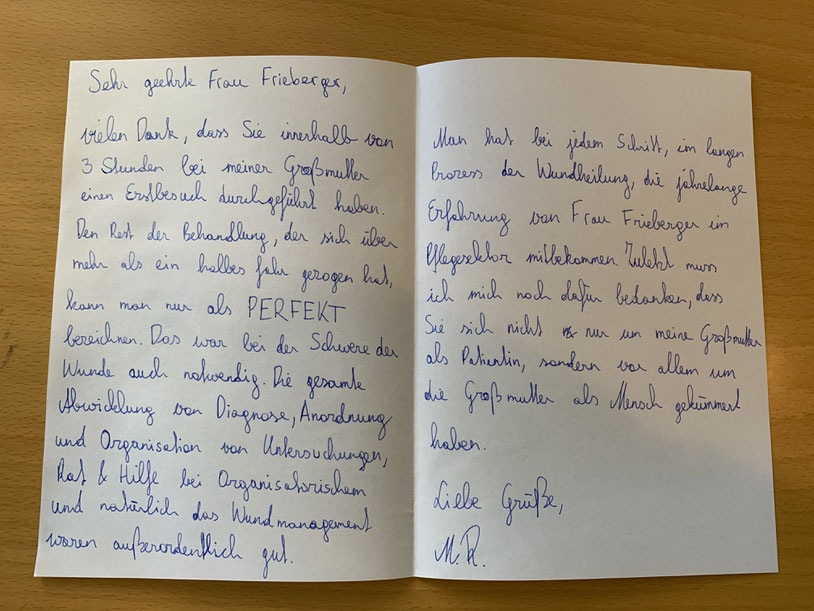 Sehr geehrte Frau Frieberger,
vielen Dank, dass Sie innerhalb von
3 Stunden bei meiner Großmutter
einen Erstbesuch durchgeführt haben.
Den Rest der Behandlung, der sich über
mehr als ein halbes Jahr gezogen hat,
kann man nur als PERFEKT
bezeichnen. Das war bei der Schwere der
Wunde auch notwendig. Die gesamte
Abwicklung von Diagnose, Anordnung
und Organisation von Untersuchungen,
Rat & Hilfe bei Organisatorischem
und natürlich das Wundmanagement
waren außerordentlich gut.
Man hat bei jedem Schritt, im langen
Prozess der Wundheilung, die jahrelange
Erfahrung von Frau Frieberger im
Pflegesektor mitbekommen. Zuletzt muss
ich mich noch dafür bedanken, dass
Sie sich nicht nur um meine Großmutter
als Patientin, sondern vor allem um
die Großmutter als Mensch gekümmert
haben.
Liebe Grüße,
M.R.